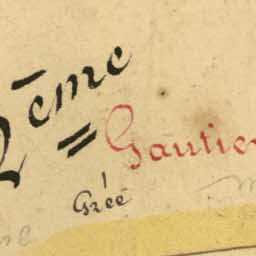 2ème =
Gautier
Gréé